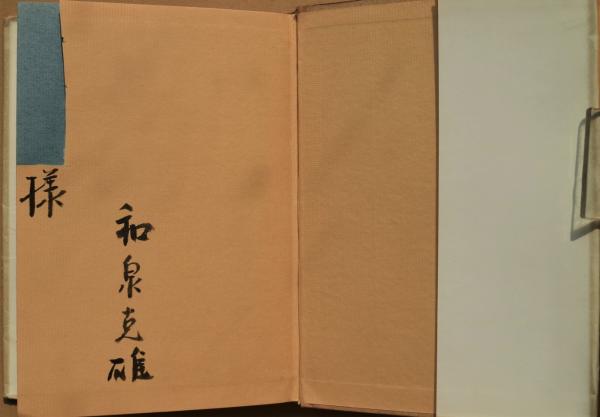 様
和泉克雄